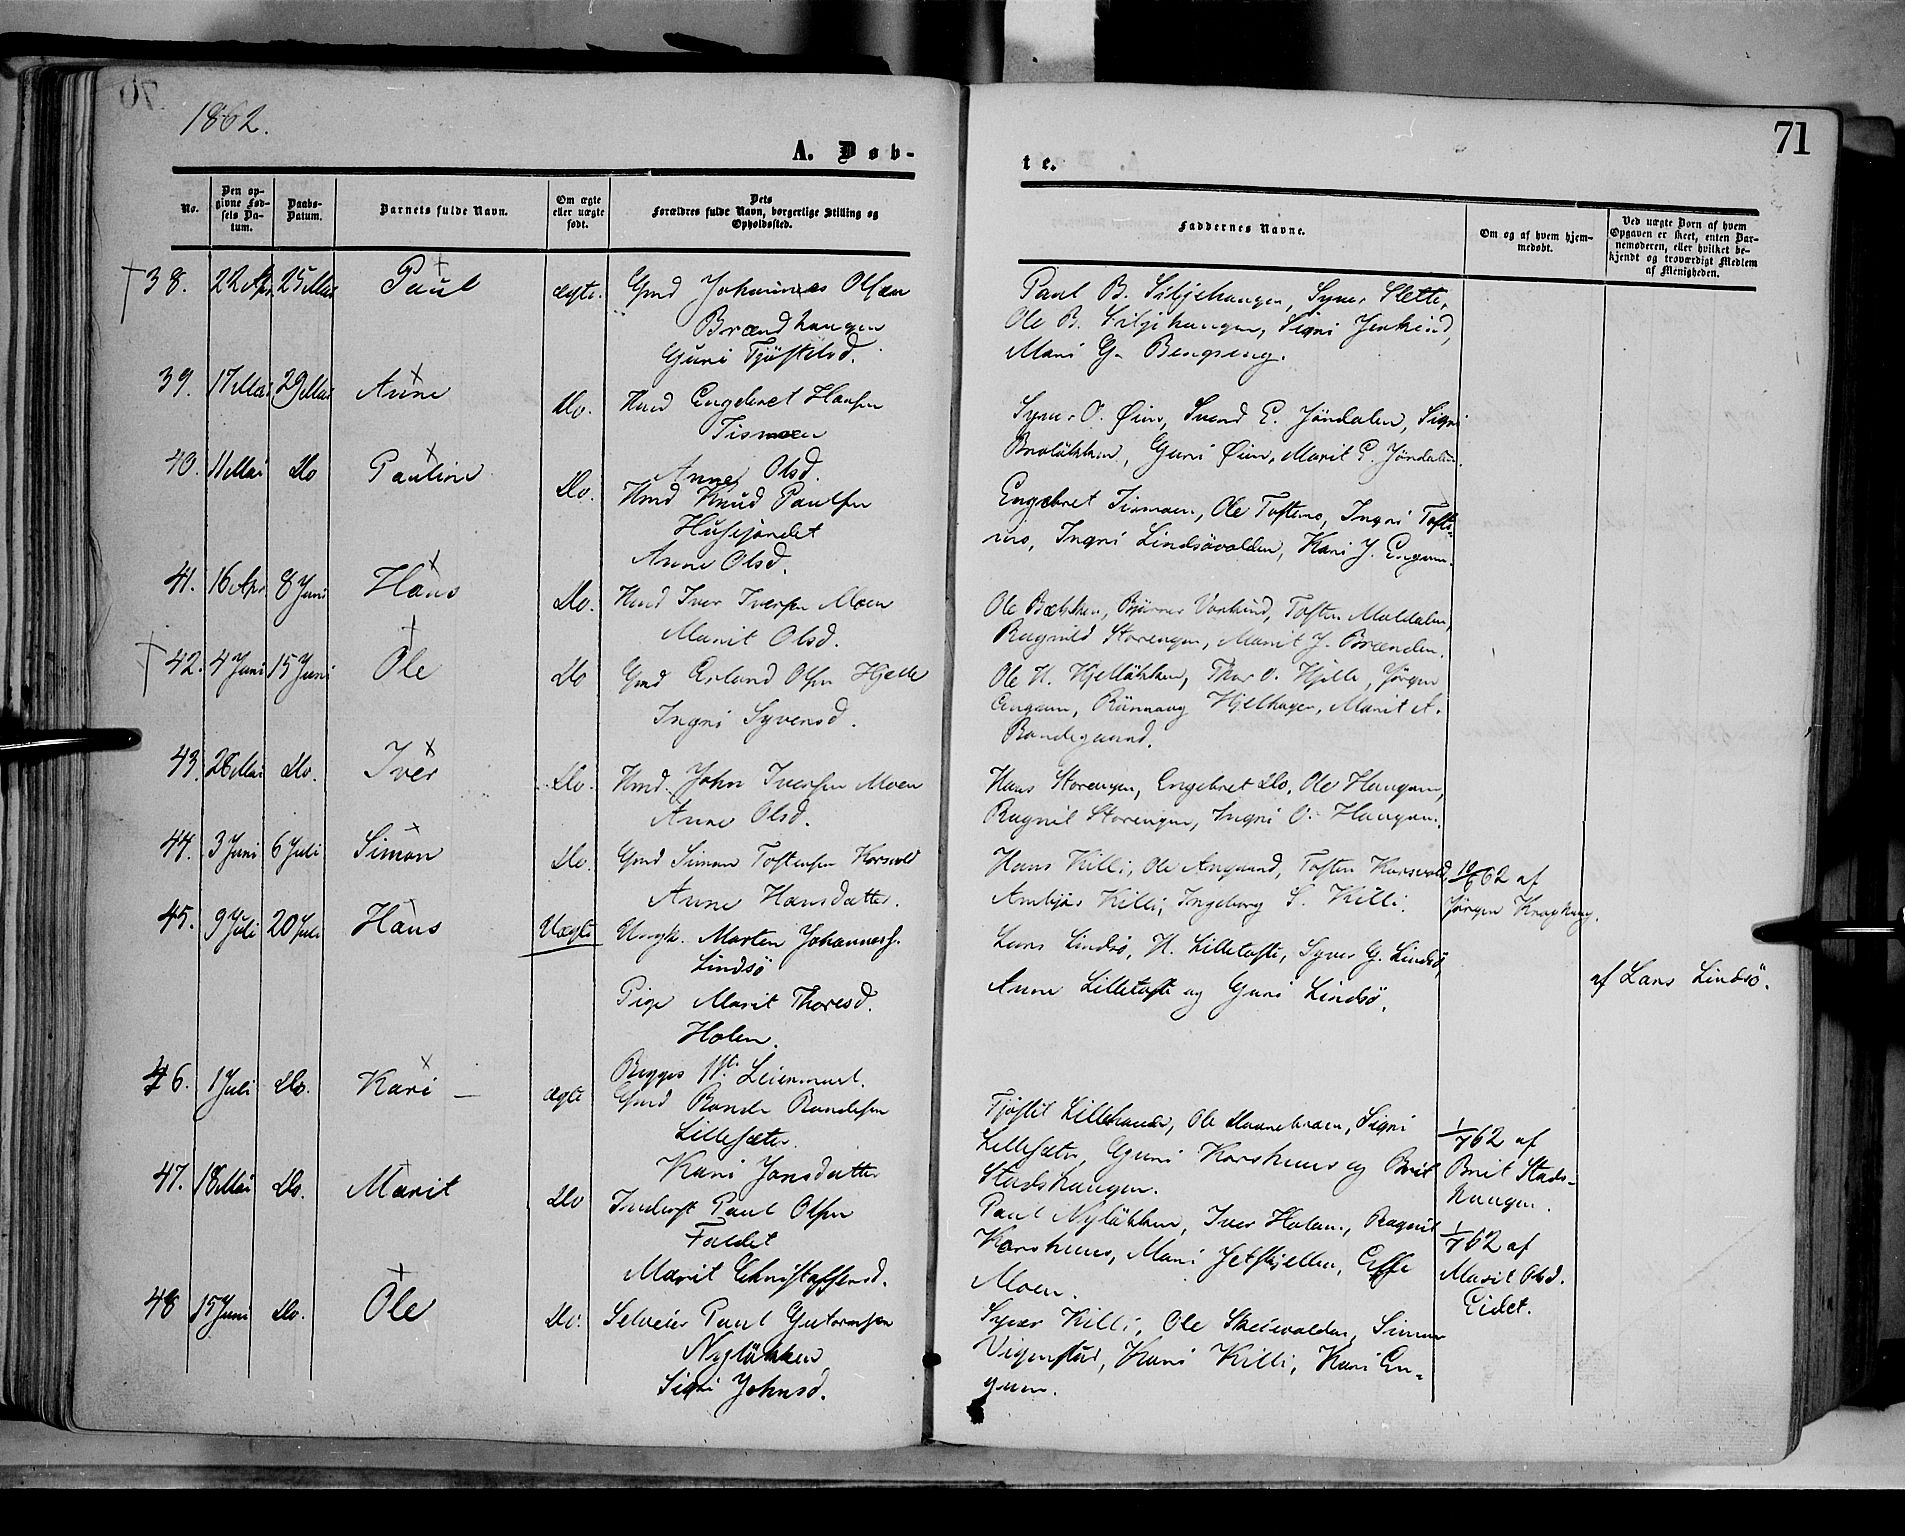 1862.
71
A. Døb-
te.
No.
Den op-
givne Fød-
sels Da-
tum.
Daabs-
Datum.
Barnets fulde Navn.
Om ægte
eller uægte
født.
Dets
Forældres fulde Navn, borgerlige Stilling og
Opholdssted.
Faddernes Navne.
Om og af hvem hjem-
medøbt.
Ved uægte Born af hvem
Opgaven er skeet, enten Bar-
nemoderen, eller hvilket be-
kjendt og troværdigt Medlem
af Menigheden.
†38. 22 Apr 25 Mai Paul ægte. Gmd Johannes Olsen
Brændhaugen
Guri Tjøstelsd.
Paul B. Siljehaugen, Syver Slette,
Ole B. Siljehaugen, Signi
Mari G. Bengseng.
39. 17 Mai 29 Mai Anne Do. Hmd Engebret Hansen
Tismoen
Anne Olsd.
Syver O. Øien, Svend E. Jøndalen, Signi
Guri Øien, Marit E. Jøndalen.
40. 11 Mai Do Pauline Do. Hmd Knud Paulsen
Husejordet
Anne Olsd.
Engebret Tismoen, Ole Toftemo, Ingri Tofte-
mo, Ingri Lindsøvolden, Kari J. Engum.
41. 16 Apr 8 Juni Hans Do. Hmd Iver Iversen Moen
Marit Olsd.
Ole Bækken, Bjørner Toften Maldalen,
Ragnild Storengen, Marit J. Brænden.
†42. 4 Juni 15 Juni Ole Do Gmd Erland Olsen Hjelle
Ingri Syversd.
Ole H. Hjelløkken, Thor O. Hjelle, Jørgen
Engum, Rønnaug Hjelhagen, Marit A.
Bandegaard.
43. 28 Mai Do. Iver Do. Hmd. John Iversen Moen
Anne Olsd.
Hans Storengen, Engebret Do, Ole Haugen,
Ragnil Storengen, Ingri O. Haugen.
44. 3 Juni 6 Juli Simon Do. Gmd Simen Toftensen Korsvold
Anne Hansdatter.
Hans Killi, Ole Angaard, Toften Korsvold,
Ambjør Killi, Ingeborg S. Killi.
10/6 62 af
Jørgen
45. 9 Juli 20 Juli Hans Uægte Ungk. Morten Johannesf.
Lindsø
Pige Marit Thoresd.
Holen.
Begges 1ste Leiermaal.
Lars Lindsø, H. Lilletofte, Syver G. Lindsø,
Anne Lilletofte og Guri Lindsø.
af Lars Lindsø.
46. 1 Juli Do. Kari – ægte Gmd Bande Bandesen
Lillesæter.
Kari Jonsdatter
Tjøstil Ole Signi
Lillesæter, Guri Korshuus og Brit
Stadshaugen.
1/7 62 af
Brit Stads-
haugen.
47. 18 Mai Do. Marit Do Inderst Paul Olsen
Foldet
Marit Christoffersd.
Paul Nyløkken, Iver Holen, Ragnil
Korshuus, Mari Jetskjellen, Effe
Moen.
1/7 62 af
Marit Olsd.
Eidet.
48 15 Juni Do. Ole Do. Selveier Paul Guttormsen
Nyløkken
Signi Johnsd.
Syver Killi, Ole Skeievolden, Simen
Vigenstad, Kari Killi, Kari En-
gum.